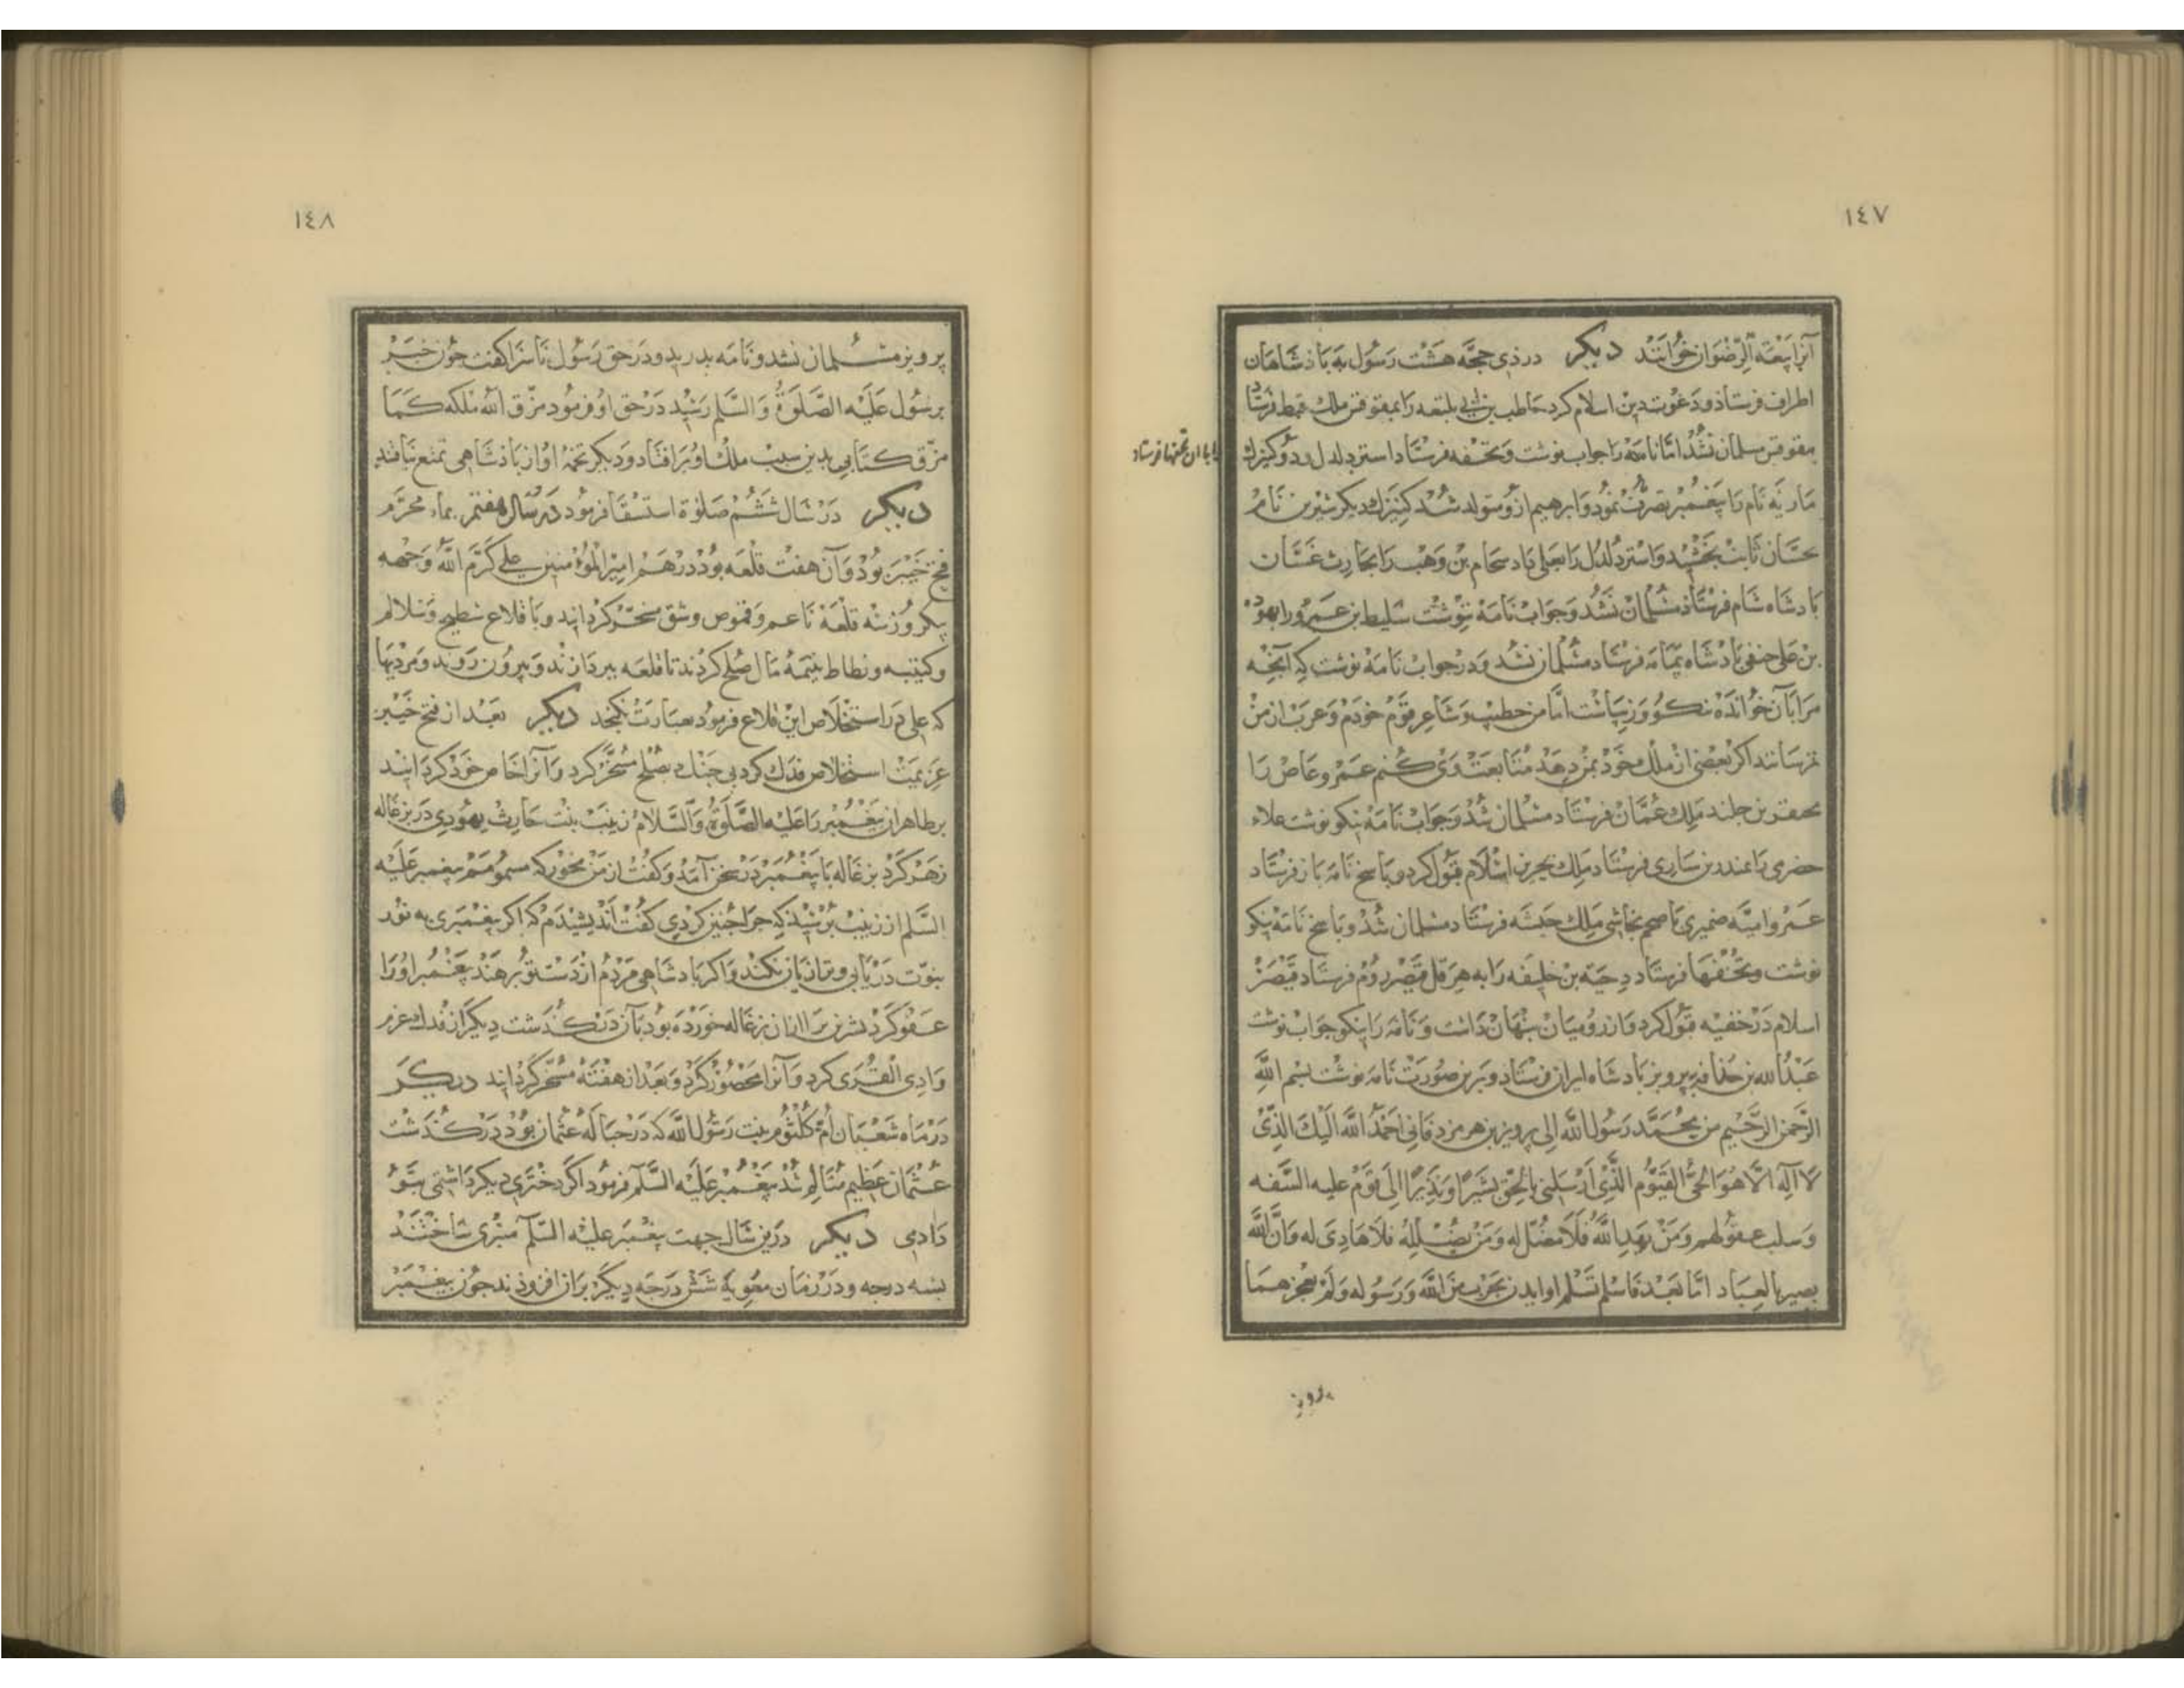 ١٤٧
آنرا بیعة الرّضوان خوانند دیکر در ذی حجّه هشت رسول به باذشاهان
اطراف فرستاذ و دعوت بدین اسلام کرد حاطب بن ابی بلتعه را بمقوقس ملک قبط فرستاد
مقوقس مسلمان نشد امّا نامه را جواب نوشت و تحفه فرستاد استر دلدل و دو کنیزک
با با ان تحفها فرستاد
ماریه نام را پیغمبر تصرّف نمود و ابرهیم ازو متولد شد کنیزک دیکر شیرین نام
حسّان ثابت بخشید و استر دلدل را بعلی داد سحام بن وهب را بحارث غسّان
بادشاه شام فرستاذ مسلمان نشد و جواب نامه نوشت سلیط بن عمرو را بهوده
بن علی حنفی بادشاه یمامه فرستاد مسلمان نشد و در جواب نامه نوشت که آنچه
مرا بآن خوانده نیکو و زیباست امّا من خطیب و شاعر قوم خودم و عرب از من
بترسانند اکر بعضی از ملک خوذ بمن دهد متابعت وی کنم عمرو عاص را
بجیفر بن جلند ملک عمّان فرستاد مسلمان شد و جواب نامه نیکو نوشت علاء
حضری را بمنذر بن ساری فرستاد ملک بحرین اسلام قبول کرد و باسخ نامه باز فرستاد
عمرو امیّه ضمیری باصحم نجاشی ملک حبشه فرستاد مسلمان شد و باسخ نامه نیکو
نوشت و تحفها فرستاد دحیة بن خلیفه را به هرقل قیصر روم فرستاد قیصر
اسلام در خفیه قبول کرد و از رومیان بنهان داشت و نامه را نیکو جواب نوشت
عبدالله بن حذافه به پرویز بادشاه ایران فرستاد و برین صورت نامه نوشت بسم الله
الرّحمن الرّحیم من محمّد رسول الله الی پرویز بن هرمزد فانی احمد الله الیک الذی
لا اله الّا هو الحیّ القیّوم الّذی ارسلنی بالحق بشیرا و نذیرا الی قوم علیه السّفه
و سلب عقولهم و من یهد الله فلا مضلّ له و من یضلله فلا هادی له و انّ الله
بصیر بالعباد امّا بعد فاسلم تسلم او ایذن بحرب من الله و رسوله و لم یعجزهما
پرویز
١٤٨
پرویز مسلمان نشد و نامه بدرید و در حق رسول ناسزا کفت جون خبر
برسول علیه الصّلوة و السّلم رسید در حق او فرمود مزّق الله ملکه کما
مزّق کتابی بدین سبب ملک او برافتاد و دیکر تخمه او از باذشاهی تمتع نیافتند
دیکر در سال ششم صلوة استسقا فرمود در سال هفتم بماه محرّم
فتح خیبر بود و آن هفت قلعه بود درهم امیر المؤمنین علی کرّم الله وجهه
بیکروز سه قلعه ناعم و قموص و شق مسخّر کردانید و با قلاع سطیح و سلالم
و کتیبه و نطاط بنیمه مال صلح کردند تا قلعه ببردازند و بیرون روند و مردیها
که علی در استخلاص این قلاع فرمود بعبارت نکنجد دیکر بعد از فتح خیبر
عزیمت استخلاص فدک کرد بی جنک بصلح مسخّر کرد و آنرا خاص خود کردانید
بر ظاهر ان پیغمبر را علیه الصّلوة و السّلام زینب بنت حارث یهودی در بزغاله
زهر کرد بزغاله با پیغمبر در سخن آمد و کفت از من مخور که مسموم پیغمبر علیه
السّلم از زینب برسید که جرا جنین کردی کفت اندیشیدم که اکر پیغمبری به نور
نبوّت دریابی و ترا زیان نکند و اکر بادشاهی مردم از دست تو برهند پیغمبر او را
عفو کرد بشر بن برا ازان بزغاله خورده بود بآن درکذشت دیکر از فدک عزم
وادی القری کرد و آنرا محصور کرد و بعد از هفته مسخّر کردانید دیکر
در ماه شعبان امّ کلثوم بنت رسول الله که در حباله عثمان بود درکذشت
عثمان عظیم متالم شد پیغمبر علیه السّلم فرمود اکر دختری دیکر داشتمی بتو
دادمی دیکر درین سال جهت پیغمبر علیه السّلم منبری ساختند
بسه درجه و در زمان معویه شش درجه دیکر بران افزودند جون پیغمبر